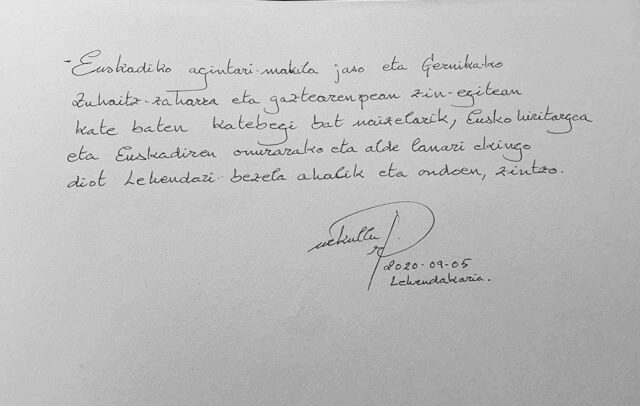 - Euskadiko agintari-makila jaso eta Gernikako
zuhaitz-zaharra eta gaztearenpean zin-egitean
kate baten katebegi bat naizelarik, Eusko hiritargoa
eta Euskadiren onurarako eta alde lanari ekingo
diot Lehendari bezela ahalik eta ondoen, zintzo.
2020-09-05
Lehendakaria.